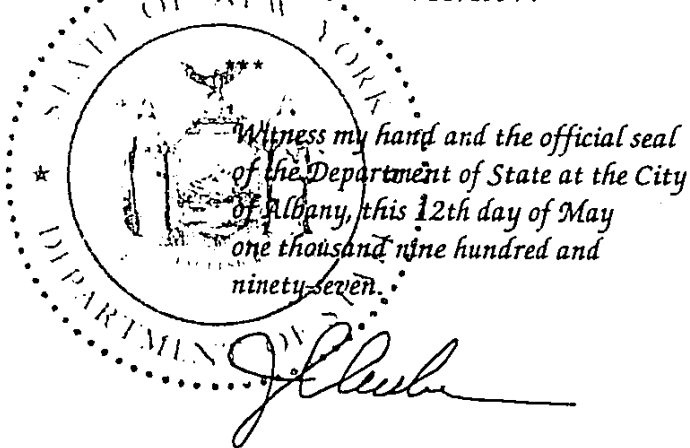 STATE OF NEW YORK
***
Witness my hand and the official seal
of the Department of State at the City
of Albany, this 12th day of May
one thousand nine hundred and
ninety-seven.
DEPARTMENT OF